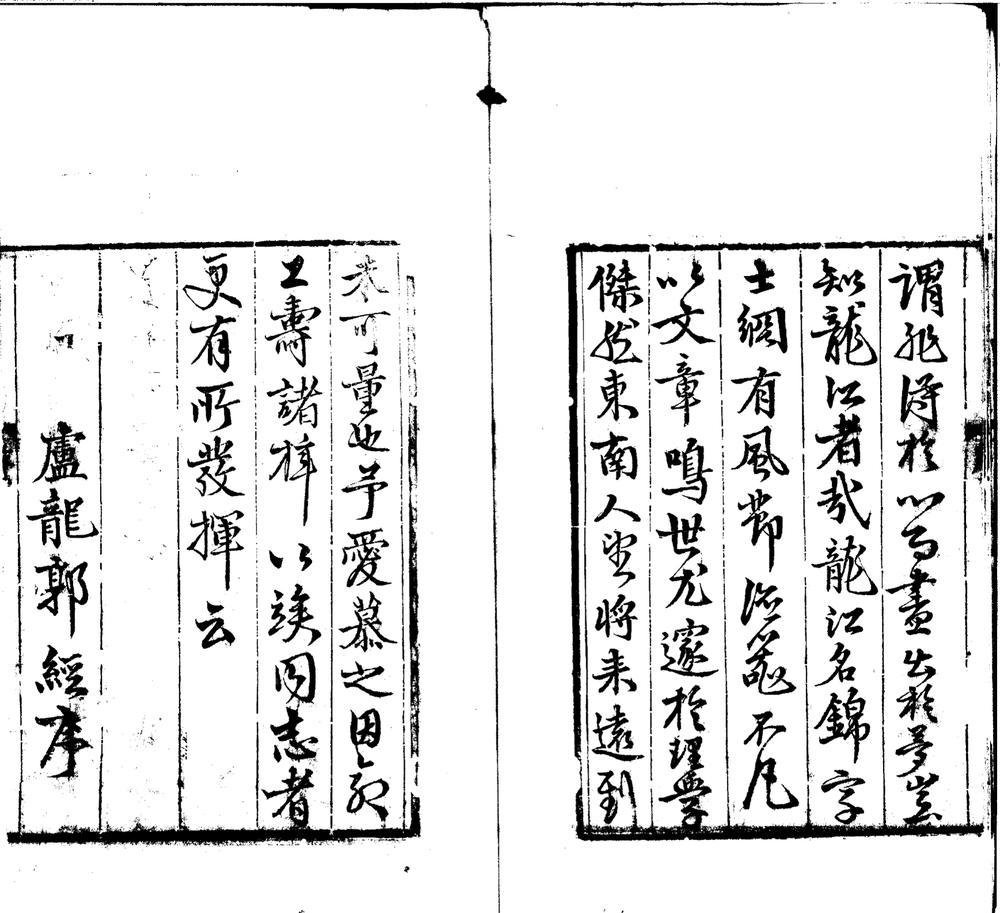 謂非得於心而畫出於夢豈
知龍江者哉龍江名錦字
士綱有風節不凡
以文章鳴世尤邃於理學
傑然東南人望將來遠到
未可量也予愛慕之因命
工壽諸梓以俟同志者
更有所發揮云
盧龍郭經序